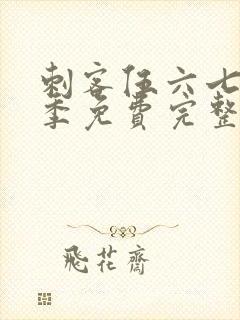 刺客伍六七
季免費完整
飛花齋